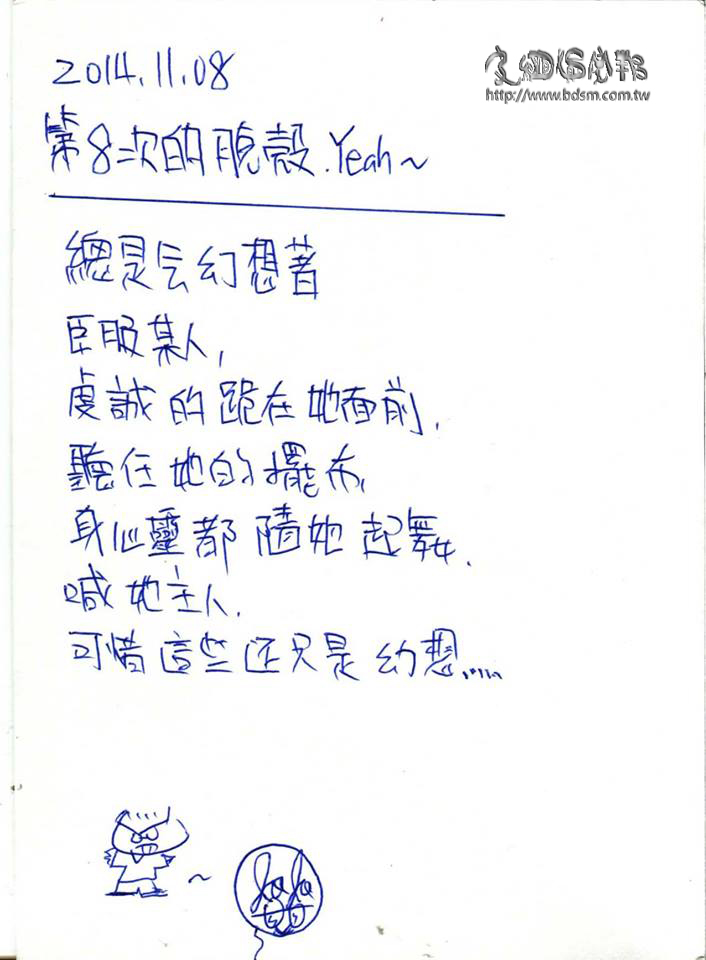 2014.11.08
http://www.bdsm.com.tw
第8次的脫殼.Yeah~
總是会幻想著
臣服某人,
虔誠的跪在她面前,
聽任她的擺布,
身心靈都隨她起舞.
喊她主人.
可惜這些还只是幻想......